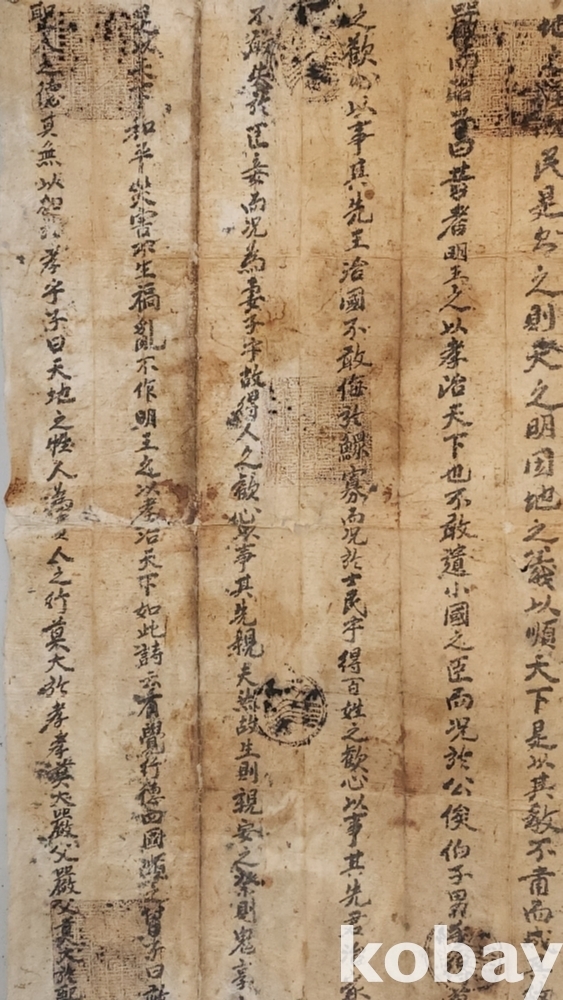 民是則之則天之明因地之義以順天下是以其敎不肅而成
嚴而治 曰昔者明王之以孝治天下也不敢遺小國之臣而况於公侯伯子男
之歡心以事其先王治國不敢侮於鰥寡而况於士民乎得百姓之歡心以事其先君
不敢失於臣妾而况為妻子乎故得人之歡心以事其先親夫然故生則親安之祭則鬼享
是以天下和平災害不生禍亂不作明王之以孝治天下如此詩云有覺行德四國順之曾子曰敢
聖人之德其無以加於孝乎子曰天地之性人為貴人之行莫大於孝孝莫大嚴父嚴父莫大於配
kobay